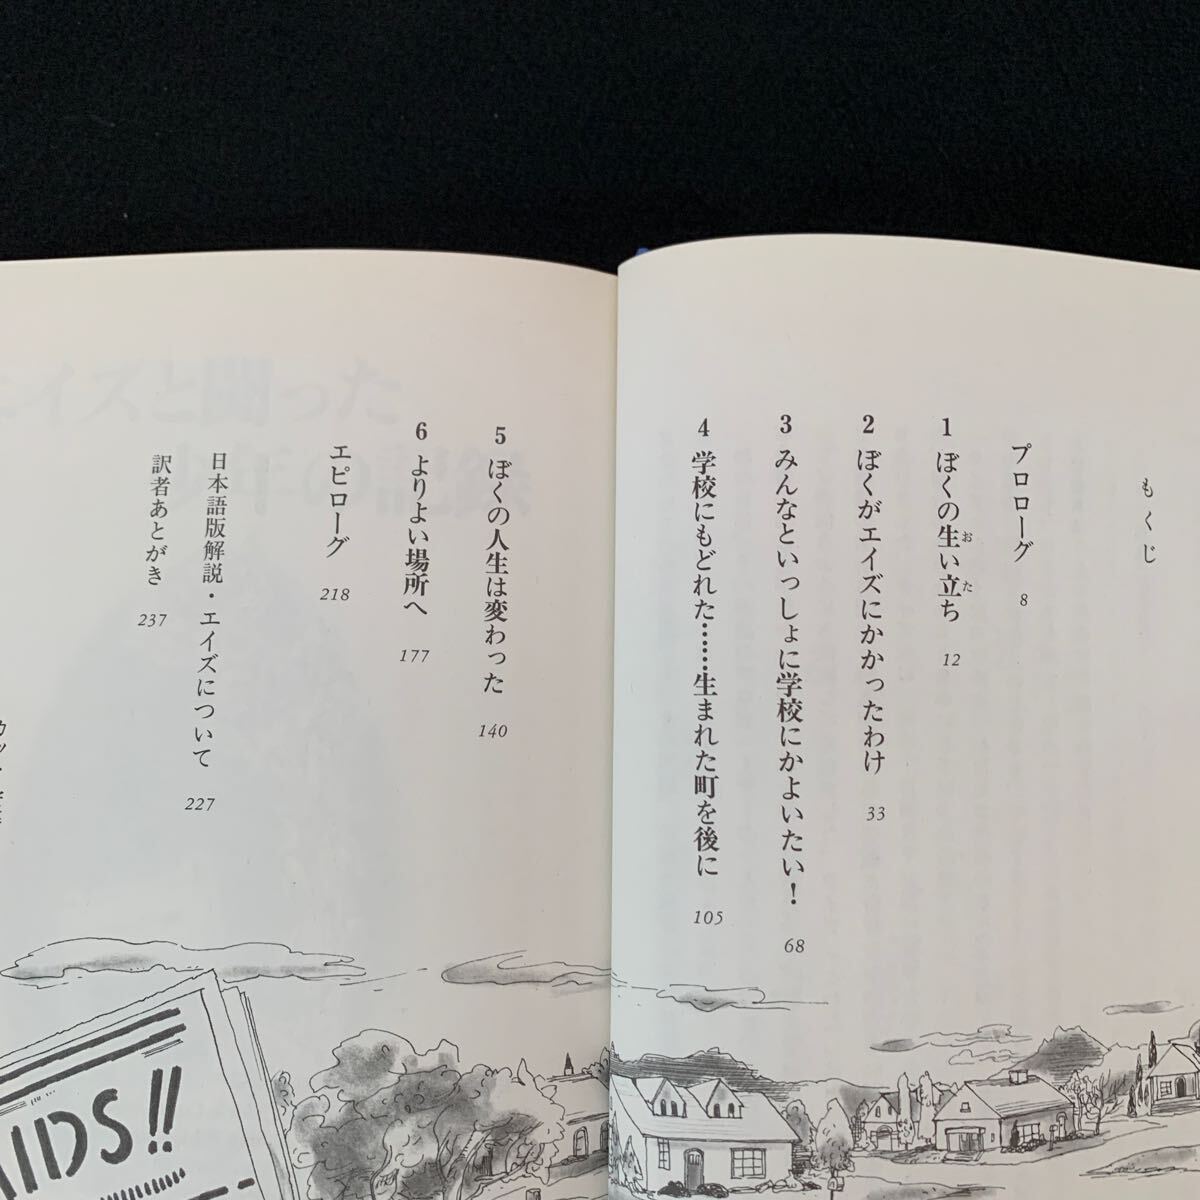 もくじ
プロローグ 8
1 ぼくの生い立ち 12
おた
2 ぼくがエイズにかかったわけ 33
3 みんなといっしょに学校にかよいたい! 68
4 学校にもどれた……生まれた町を後に 105
5 ぼくの人生は変わった 140
6 よりよい場所へ 177
エピローグ 218
日本語版解説・エイズについて 227
訳者あとがき 237
IDS!!